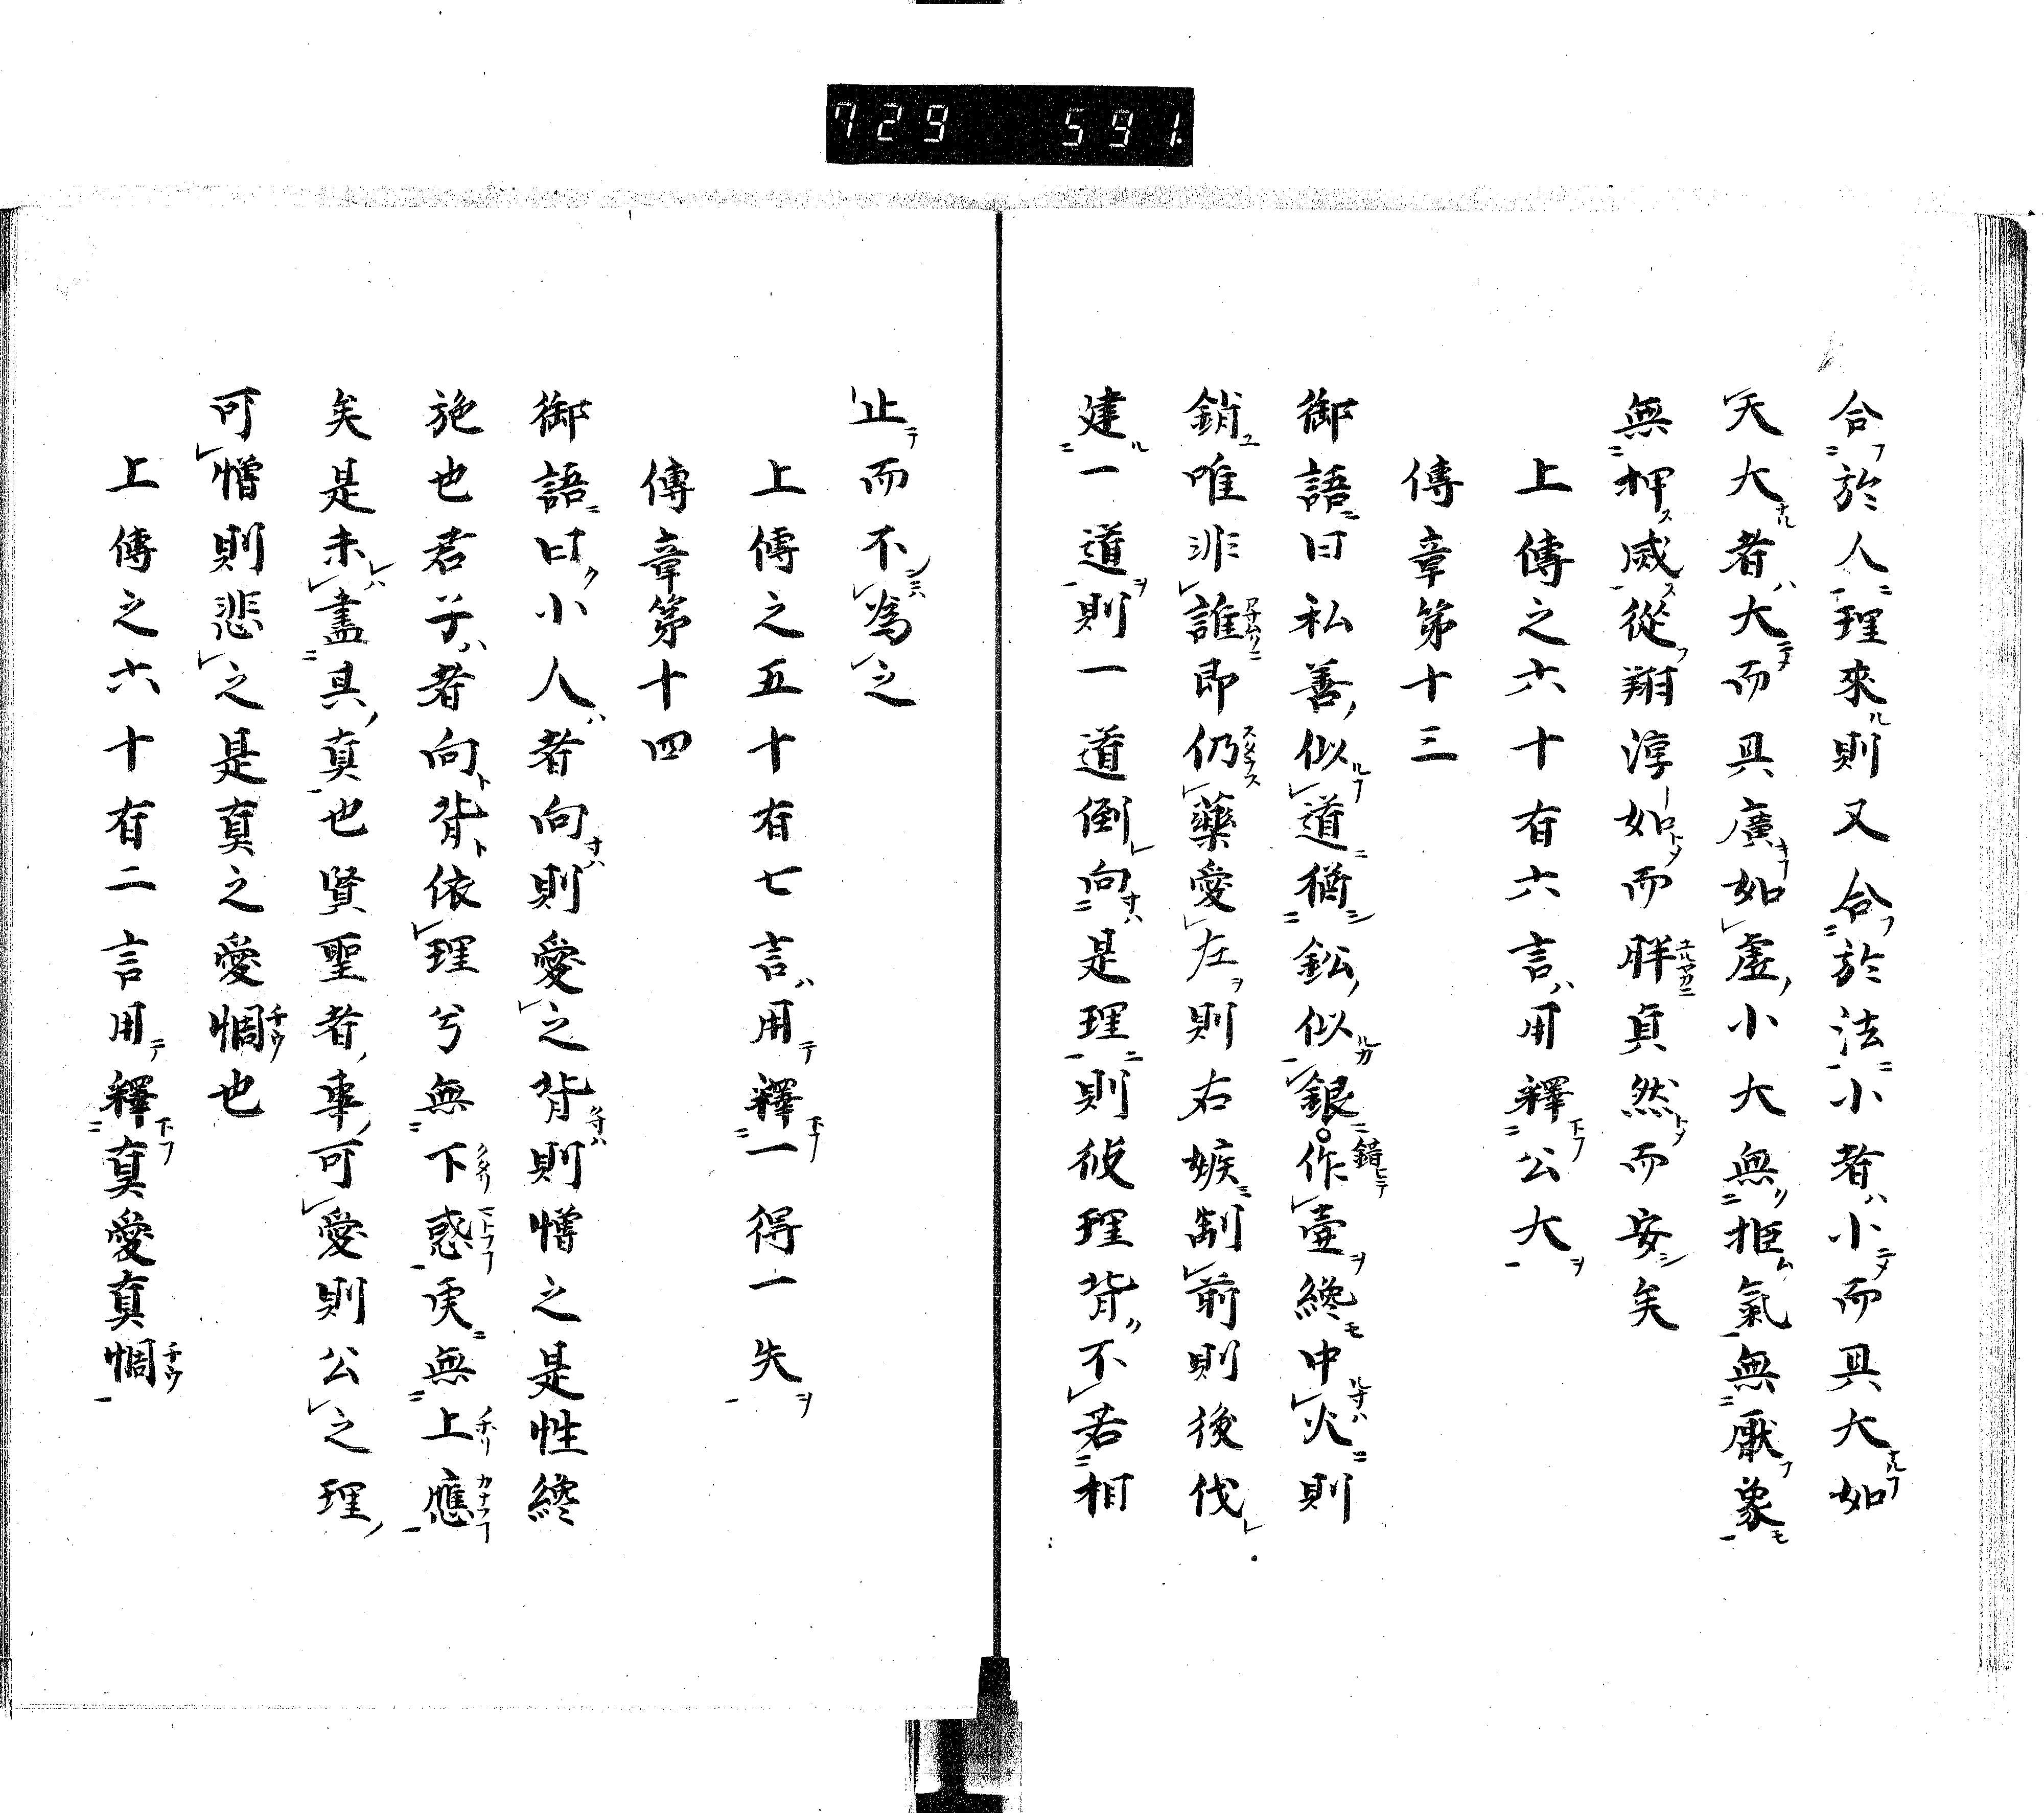 729 591.
合於人理來則又合於法小者小而具大如
天大者大而具廣如虛小大無拒氣無厭象
無押威從翔淳如而胖貞然而安矣
上傳之六十有六言用釋公大
傳章第十三
御語曰私善似道猶鈆似銀鑄作壷終中火則
銷唯非誰即仍藥愛左則右嫉制前則後伐
建一道則一道倒向是理則彼理背不若相
止而不為之
上傳之五十有七言用釋一得一失
傳章第十四
御語曰小人者向則愛之背則憎之是性終
施也君子者向背依理兮無下惑戻無上應
矣是未盡具真也賢聖者事可愛則公之理
可憎則悲之是真之愛惆也
上傳之六十有二言用釋真愛真惆